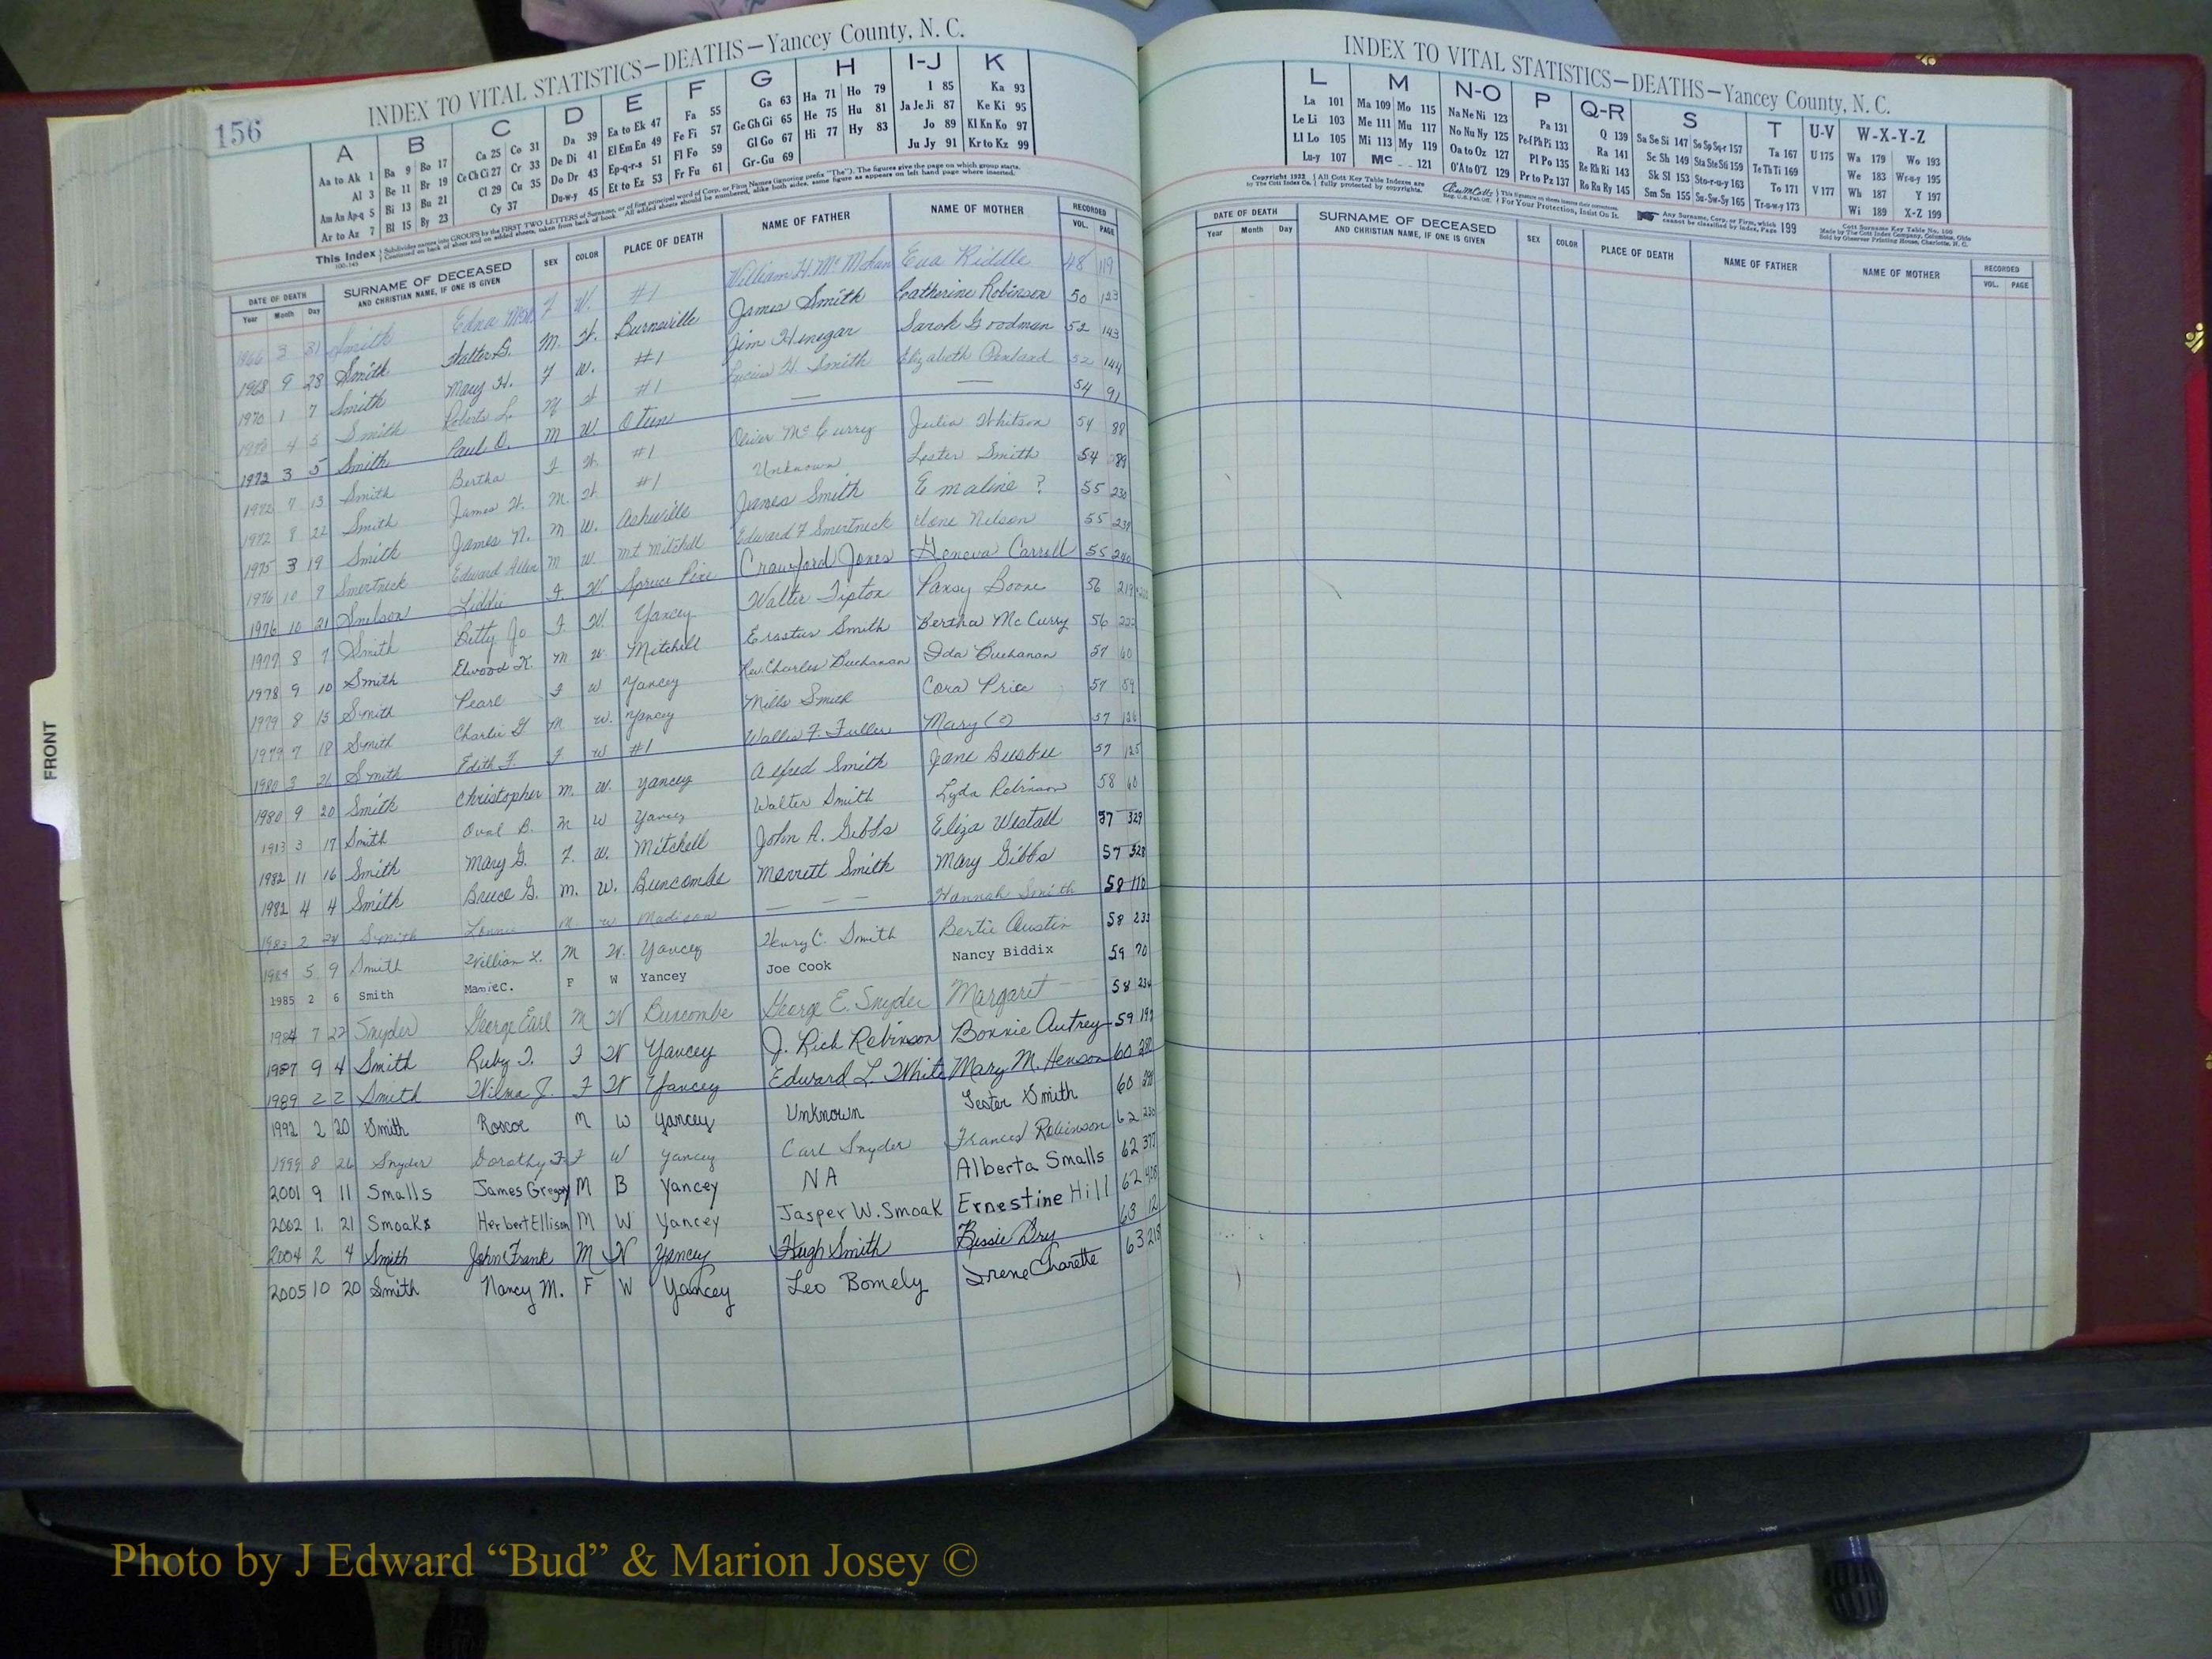 156
INDEX TO VITAL STATISTICS—DEATHS—Yancey County, N. C.
A B C D E F G H I-J K
Aa to Ak 1 Ba 9 Bo 17 Ca 25 Co 31 Da 39 Ea to Ek 47 Fa 55 Ga 63 Ha 71 Ho 79 I 85 Ka 93
Al 3 Be 11 Br 19 Ce Ch Ci 27 Cr 33 De Di 41 El Em En 49 Fe Fi 57 Ge Gh Gi 65 He 75 Hu 81 Ja Je Ji 87 Ke Ki 95
Am An Ap-q 5 Bi 13 Bu 21 Cl 29 Cu 35 Do Dr 43 Ep-q-r-s 51 Fl Fo 59 Gl Go 67 Hi 77 Hy 83 Jo 89 Kl Kn Ko 97
Ar to Az 7 Bl 15 By 23 Cy 37 Du-w-y 45 Et to Ez 53 Fr Fu 61 Gr-Gu 69 Ju Jy 91 Kr to Kz 99
This Index
DATE OF DEATH SURNAME OF DECEASED SEX COLOR PLACE OF DEATH NAME OF FATHER NAME OF MOTHER RECORDED
Year Month Day AND CHRISTIAN NAME, IF ONE IS GIVEN VOL. PAGE
1966 3 31 Smith Edna F W. #1 William H. Eva Riddle 48 119
1968 9 28 Smith Walter G. M. W. Burnsville James Smith Catherine Robinson 50 123
1970 1 7 Smith Mary H. F W. #1 Jim Henegar Sarah Goodman 52 143
4 5 Smith Roberts L. M W #1 Lucius H. Smith Elizabeth 52 144
1972 3 5 Smith Paul D. M W. Oteen — — 54 91
1972 7 13 Smith Bertha F. W. #1 Oliver McCurry Julia Whitson 54 88
1972 8 22 Smith James H. M. W. #1 Unknown Lester Smith 54 289
1975 3 19 Smith James N. M W. Asheville James Smith Emaline ? 55 230
1976 10 9 Smertneck Edward Allen M W. Mt Mitchell Edward F Smertneck Ione Nelson 55 239
1976 10 21 Snelson Liddie F. W. Spruce Pine Crawford Jones Geneva Carroll 55 240
1977 8 7 Smith Betty Jo F. W. Yancey Walter Tipton Pansy Boone 56 219
1978 9 10 Smith Elwood K. M W. Mitchell Erastus Smith Bertha McCurry 56 222
1979 8 15 Smith Pearl F W Yancey Rev. Charles Buchanan Ida Buchanan 57 60
1979 7 18 Smith Charlie G M W. Yancey Mills Smith Cora Price 57 59
1980 3 26 Smith Edith F. F W #1 Walter F. Fuller Mary (?) 57 126
1980 9 20 Smith Christopher M. W. Yancey Alfred Smith Jane Busbee 57 125
3 17 Smith Oval B. M W Yancey Walter Smith Lyda Robinson 58 60
1982 11 16 Smith Mary G. F. W. Mitchell John A. Gibbs Eliza Westall 57 329
1982 4 4 Smith Bruce G. M. W. Buncombe Merritt Smith Mary Gibbs 57 328
1983 2 24 Smith Lonnie M. W Madison — — — Hannah Smith 58 110
1984 5 9 Smith William L. M W. Yancey Henry C. Smith Bertie Austin 58 233
1985 2 6 Smith Mamie C. F W Yancey Joe Cook Nancy Biddix 59 70
1984 7 22 Snyder George Earl M W Buncombe George E. Snyder Margaret — 58 234
1987 9 4 Smith Ruby I. F W Yancey J. Rich Robinson Bonnie Autrey 59 197
1989 2 2 Smith Wilma J. F W Yancey Edward L. White Mary M. Henson 60 280
1992 2 20 Smith Roscoe M W Yancey Unknown Lester Smith 60
1999 8 26 Snyder Dorothy F. F W Yancey Carl Snyder Frances Robinson 62 230
2001 9 11 Smalls James Gregory M B Yancey NA Alberta Smalls 62 377
2002 1 21 Smoaks Herbert Ellison M W Yancey Jasper W. Smoak Ernestine Hill 62 408
2004 2 4 Smith John Frank M W Yancey Hugh Smith Bessie Dry 63 12
2005 10 20 Smith Nancy M. F W Yancey Leo Bomely Irene Charette 63 218
INDEX TO VITAL STATISTICS—DEATHS—Yancey County, N. C.
L M N-O P Q-R S T U-V W-X-Y-Z
La 101 Ma 109 Mo 115 Na Ne Ni 123 Pa 131 Q 139 Sa Se Si 147 So Sp Sq-r 157 Ta 167 U 175 Wa 179 Wo 193
Le Li 103 Me 111 Mu 117 No Nu Ny 125 Pe-f Ph Pi 133 Ra 141 Sc Sh 149 Sta Ste Sti 159 Te Th Ti 169 We 183 Wr-u-y 195
Ll Lo 105 Mi 113 My 119 Oa to Oz 127 Pl Po 135 Re Rh Ri 143 Sk Sl 153 Sto-r-u-y 163 To 171 V 177 Wh 187 Y 197
Lu-y 107 Mc 121 O'A to O'Z 129 Pr to Pz 137 Ro Ru Ry 145 Sm Sn 155 Su-Sw-Sy 165 Tr-u-w-y 173 Wi 189 X-Z 199
DATE OF DEATH SURNAME OF DECEASED SEX COLOR PLACE OF DEATH NAME OF FATHER NAME OF MOTHER RECORDED
Year Month Day AND CHRISTIAN NAME, IF ONE IS GIVEN VOL. PAGE
FRONT
Photo by J Edward “Bud” & Marion Josey ©